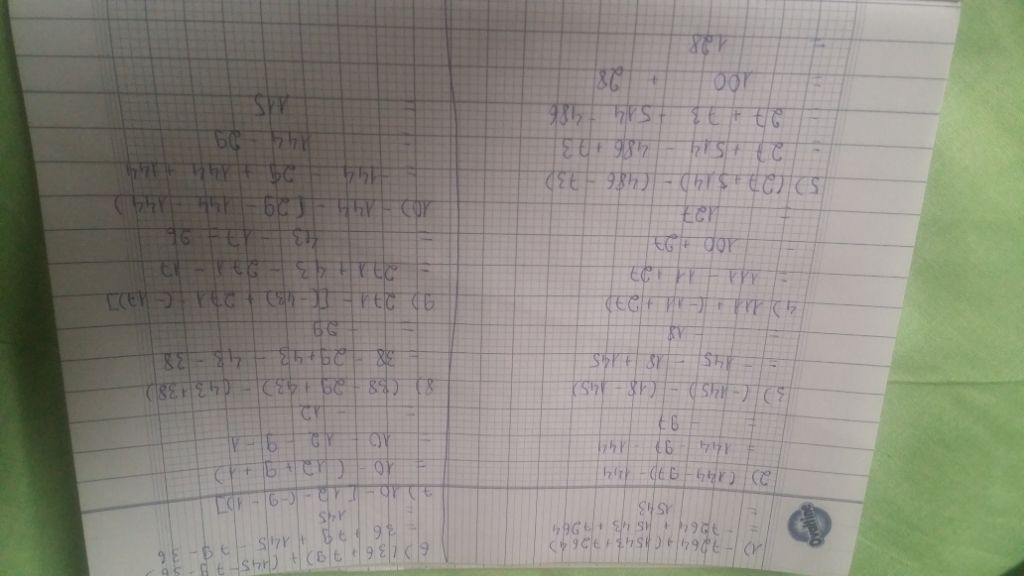 1) -7264 + (1543 + 7264)
= -7264 + 1543 + 7264
= 1543
2) (144 - 97) - 144
= 144 - 97 - 144
= - 97
3) (-145) - (18 - 145)
= - 145 - 18 + 145
= - 18
4) 111 + (-11 + 27)
= 111 - 11 + 27
= 100 + 27
= 127
5) (27 + 514) - (486 - 73)
= 27 + 514 - 486 + 73
= 27 + 73 + 514 - 486
= 100 + 28
= 128
6) (36 + 79) + (145 - 79 - 36)
= 36 + 79 + 145 - 79 - 36
= 145
7) 10 - [12 - (-9 - 1)]
= 10 - (12 + 9 + 1)
= 10 - 12 - 9 - 1
= - 12
8) (38 - 29 + 43) - (43 + 38)
= 38 - 29 + 43 - 43 - 38
= - 29
9) 271 - [(-43) + 271 - (-17)]
= 271 + 43 - 271 - 17
= 43 - 17 = 26
10) - 144 - (29 - 144 - 144)
= - 144 - 29 + 144 + 144
= 144 - 29
= 115